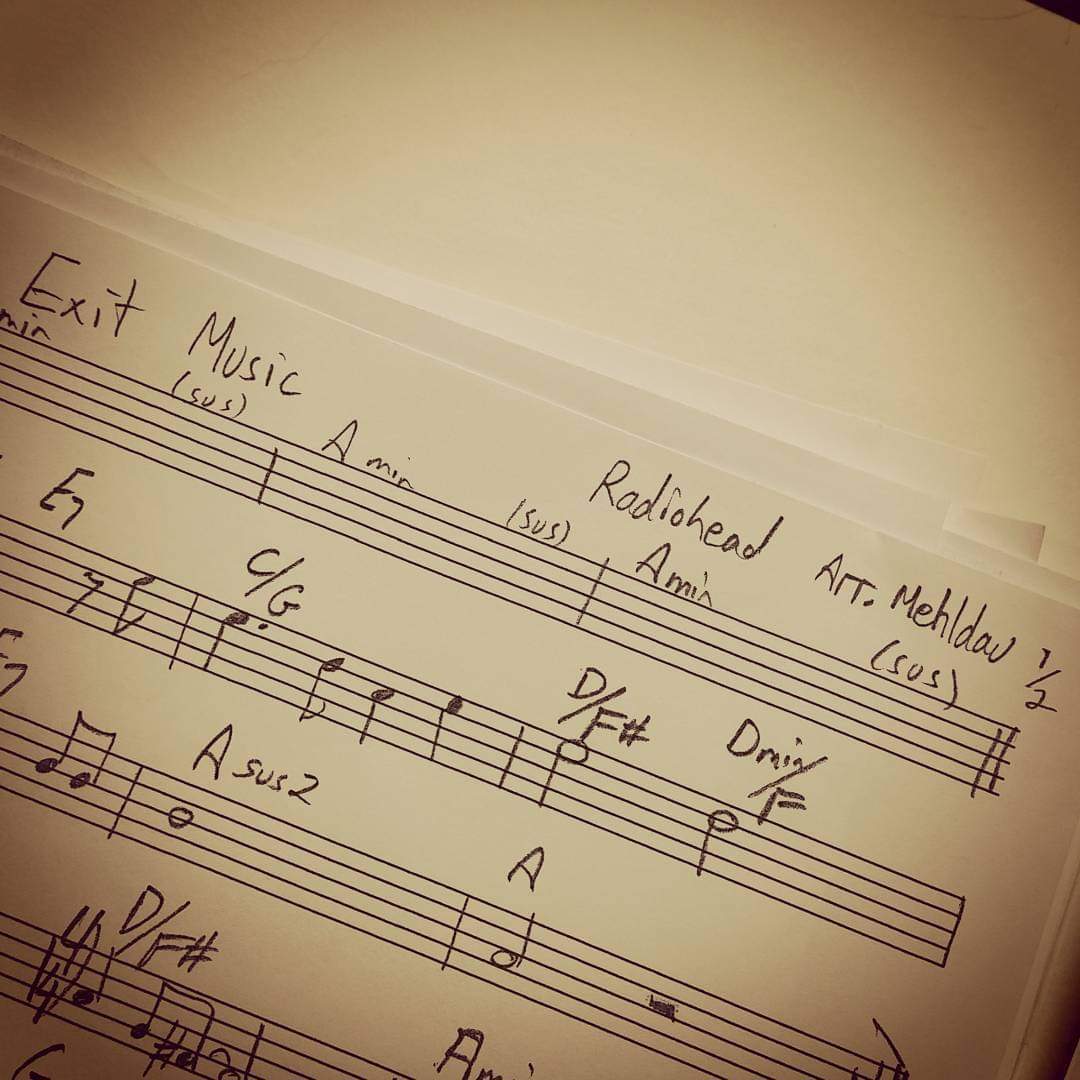 Exit Music
Radiohead Arr. Mehldau 1/2
min (sus) Amin (sus) Amin (sus)
E7 C/G D/F# Dmin/F
E7 Asus2 A
4/4 D/F# Ami
G